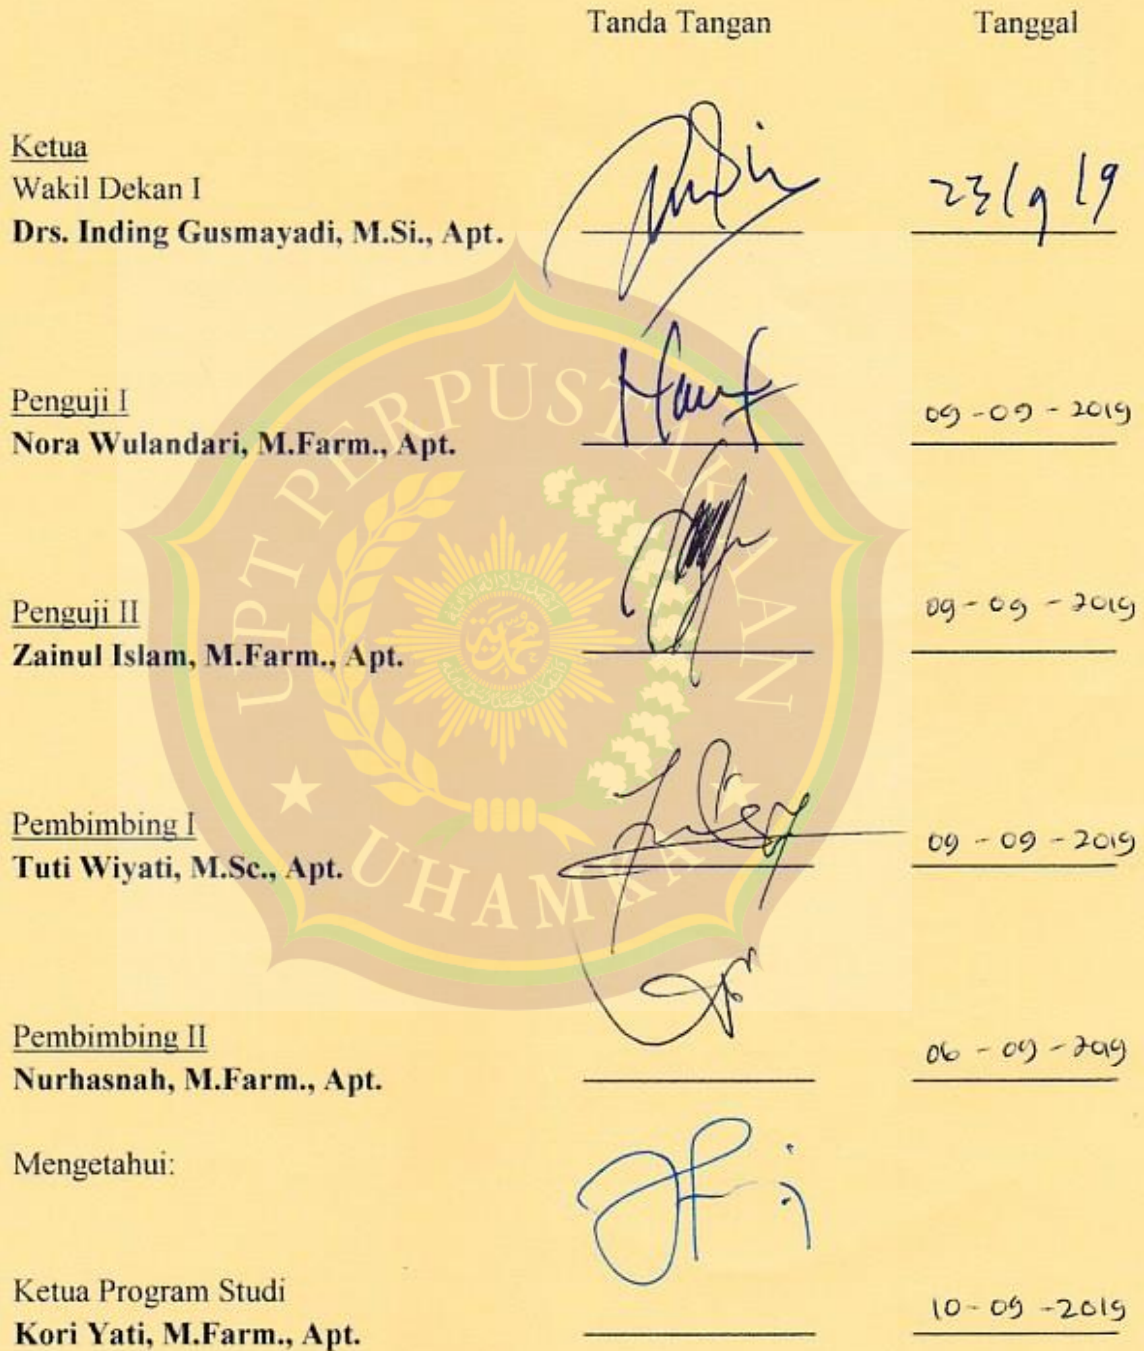 Tanda Tangan Tanggal
Ketua
Wakil Dekan I
Drs. Inding Gusmayadi, M.Si., Apt. 23/9 19
Penguji I
Nora Wulandari, M.Farm., Apt. 09-09-2019
Penguji II
Zainul Islam, M.Farm., Apt. 09-09-2019
Pembimbing I
Tuti Wiyati, M.Sc., Apt. 09-09-2019
Pembimbing II
Nurhasnah, M.Farm., Apt. 06-09-2019
Mengetahui:
Ketua Program Studi
Kori Yati, M.Farm., Apt. 10-09-2019
UPT PERPUSTAKAAN
UHAMKA